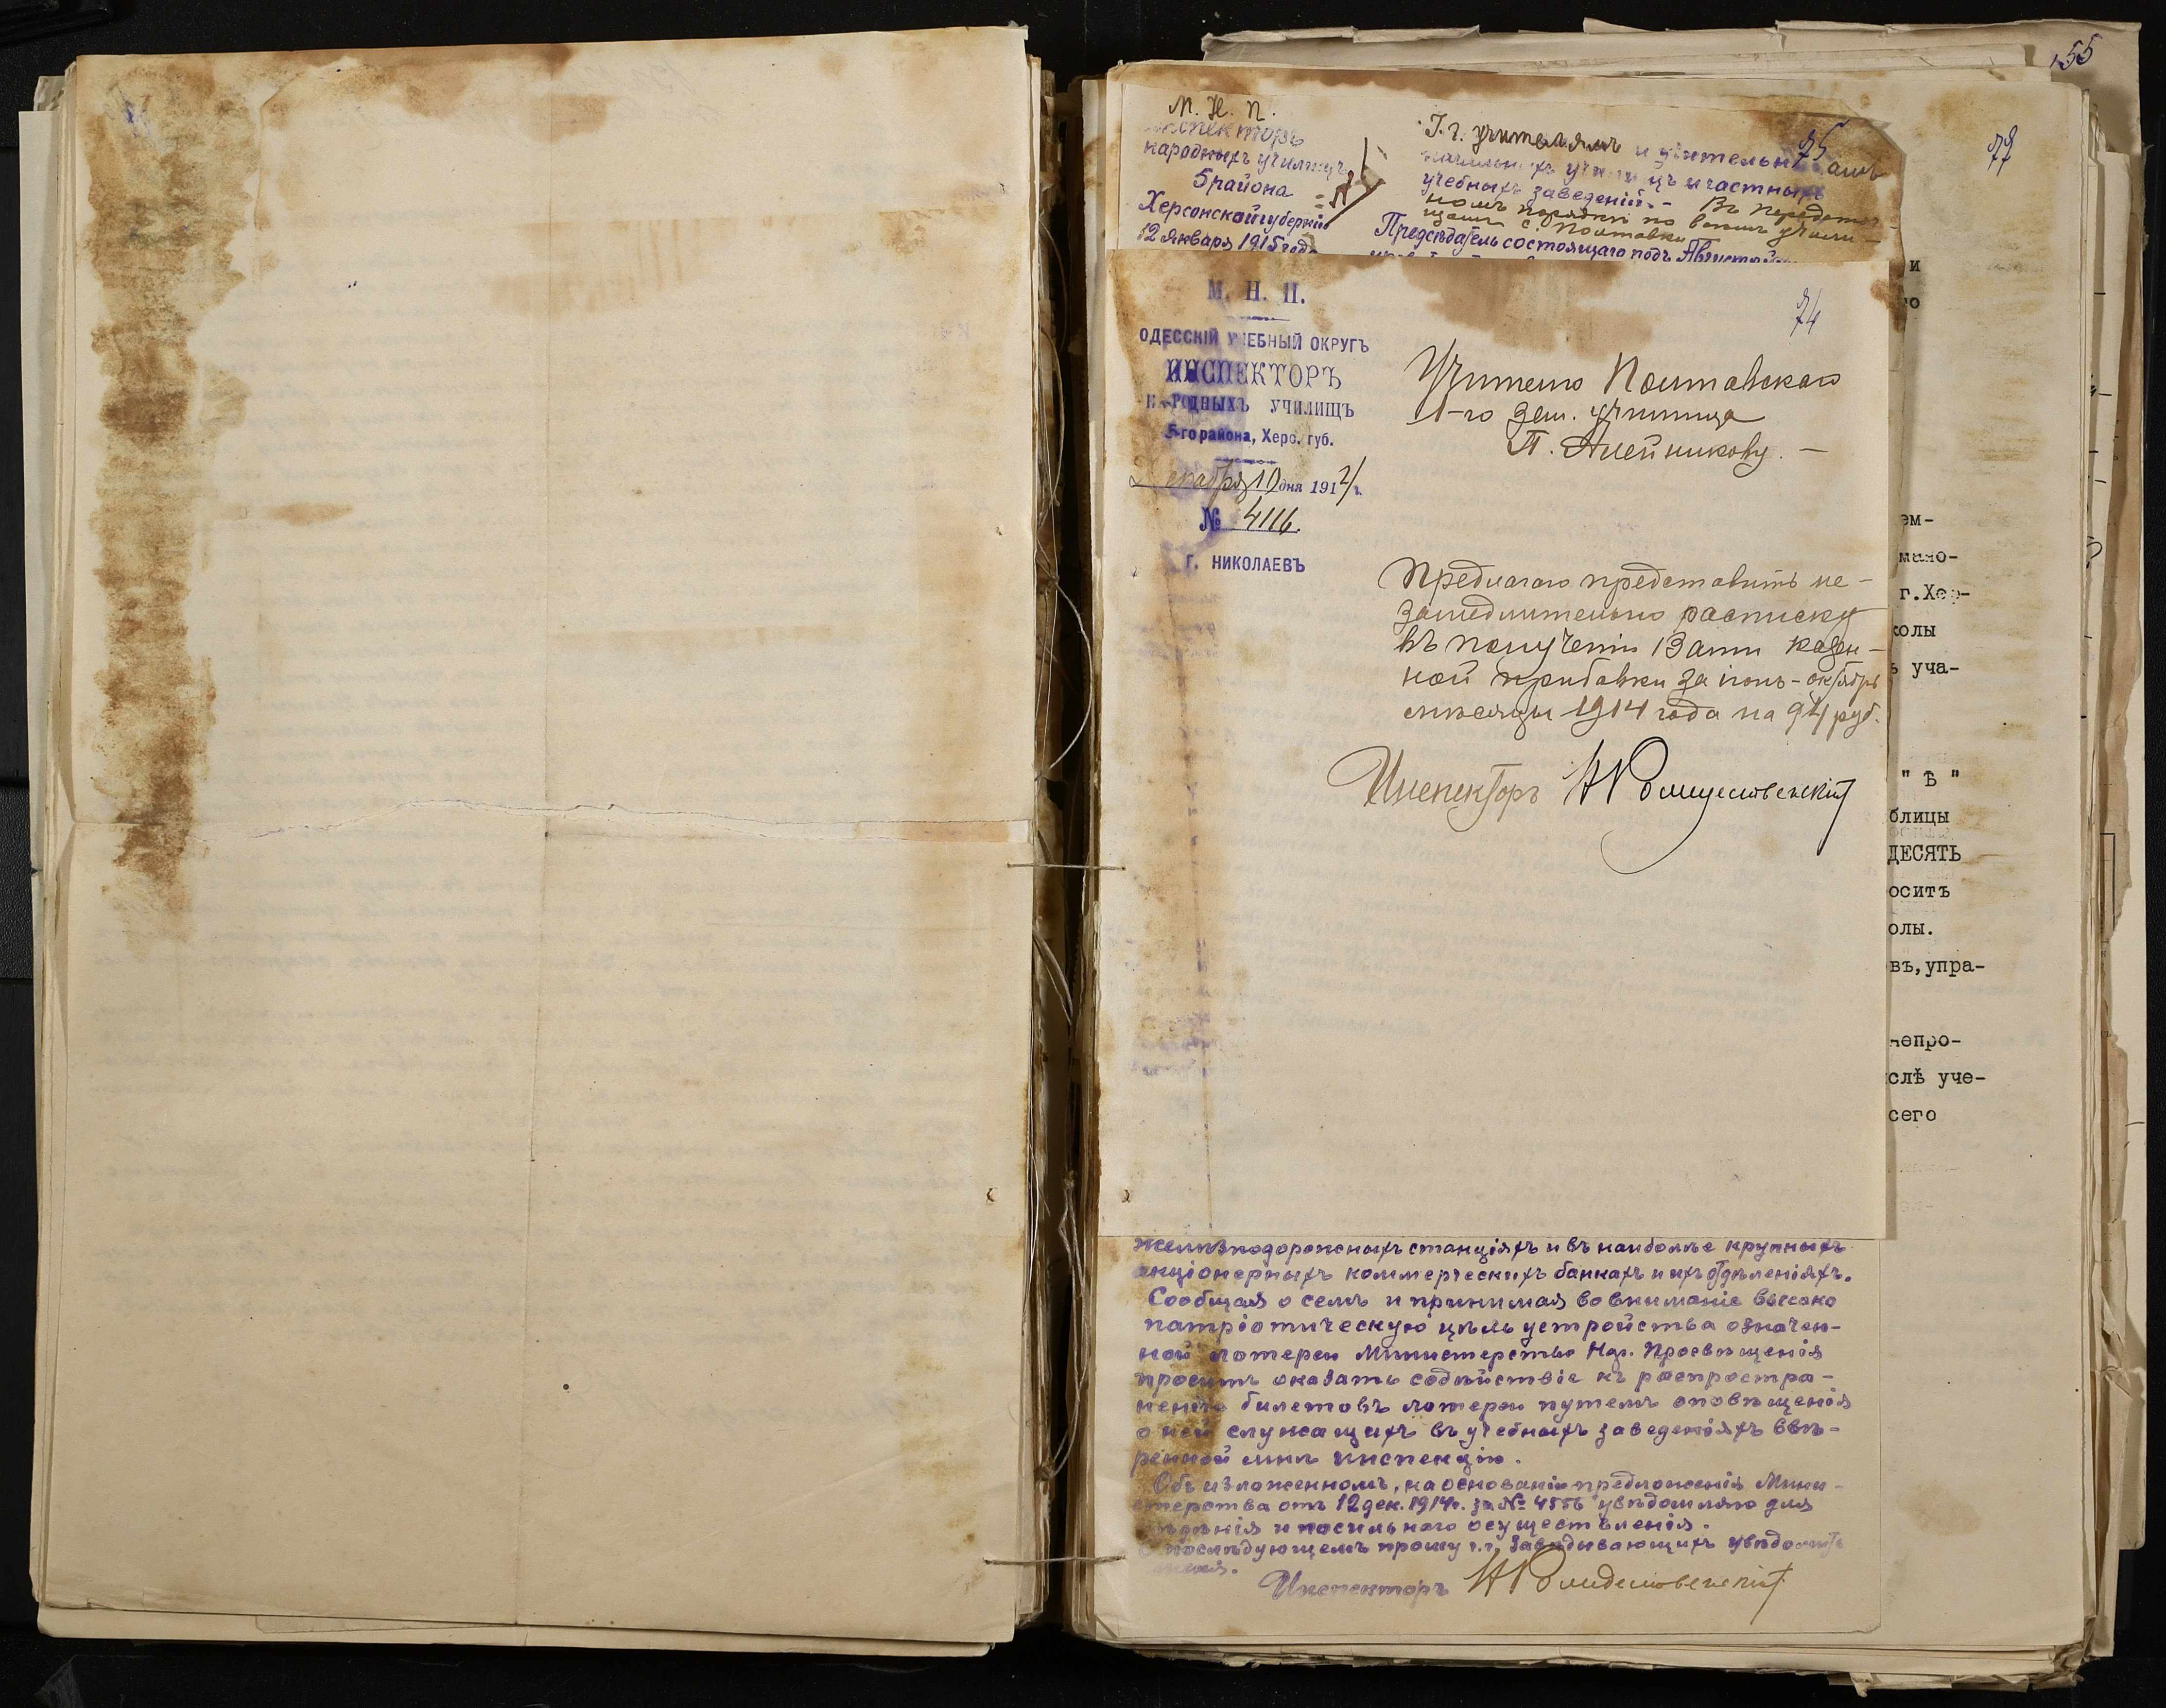 55
77
75
М. Н. П.
Инспекторъ
народныхъ училищъ
5 района
Херсонской губерніи
12 Января 1915 года
Г.г. учителямъ и учительницамъ
начальныхъ училищъ и частныхъ
учебныхъ заведеній. - Въ
номъ порядкѣ по
с. Полтавки
Предсѣдатель состоящаго подъ
74
М. Н. П.
ОДЕССКІЙ УЧЕБНЫЙ ОКРУГЪ
ИНСПЕКТОРЪ
НАРОДНЫХЪ УЧИЛИЩЪ
5-го района, Херс. губ.
Декабря 10 дня 1914 г.
№ 4116.
Г. НИКОЛАЕВЪ
Учителю Полтавскаго
1-го Зем. училища
П. Алейникову. —
Предлагаю представить не-
замедлительно расписку
въ полученіи Вами казен-
ной прибавки за іюль-октябрь
мѣсяцы 1914 года на 94 руб.
Инспекторъ
и
го
ем-
мано-
г.Хер-
колы
ь уча-
" Ѣ "
блицы
ДЕСЯТЬ
оситъ
олы.
въ,упра-
непро-
слѣ уче-
сего
желѣзнодорожныхъ станціяхъ и въ наиболѣе крупныхъ
акціонерныхъ коммерческихъ банкахъ и ихъ отдѣленіяхъ.
Сообщая о семъ и принимая во вниманіе высоко
патріотическую цѣль устройства означен-
ной лотереи Министерство Нар. Просвѣщенія
проситъ оказать содѣйствіе къ распростра-
ненію билетовъ лотереи путемъ оповѣщенія
о ней служащихъ въ учебныхъ заведеніяхъ ввѣ-
ренной мнѣ инспекціи.
Объ изложенномъ, на основаніи предложенія Мини-
стерства отъ 12 дек. 1914 г. за № 4556 увѣдомляю для
свѣдѣнія и посильнаго осуществленія.
О послѣдующемъ прошу г.г. Завѣдывающихъ увѣдомить
меня.
Инспекторъ